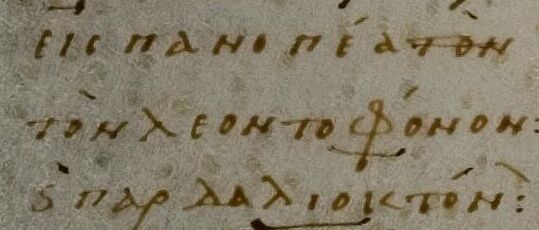 εἰς πανοπέα τὸν
τὸν λεοντοφόνον:
ϛ παρδαλιοκτόν: